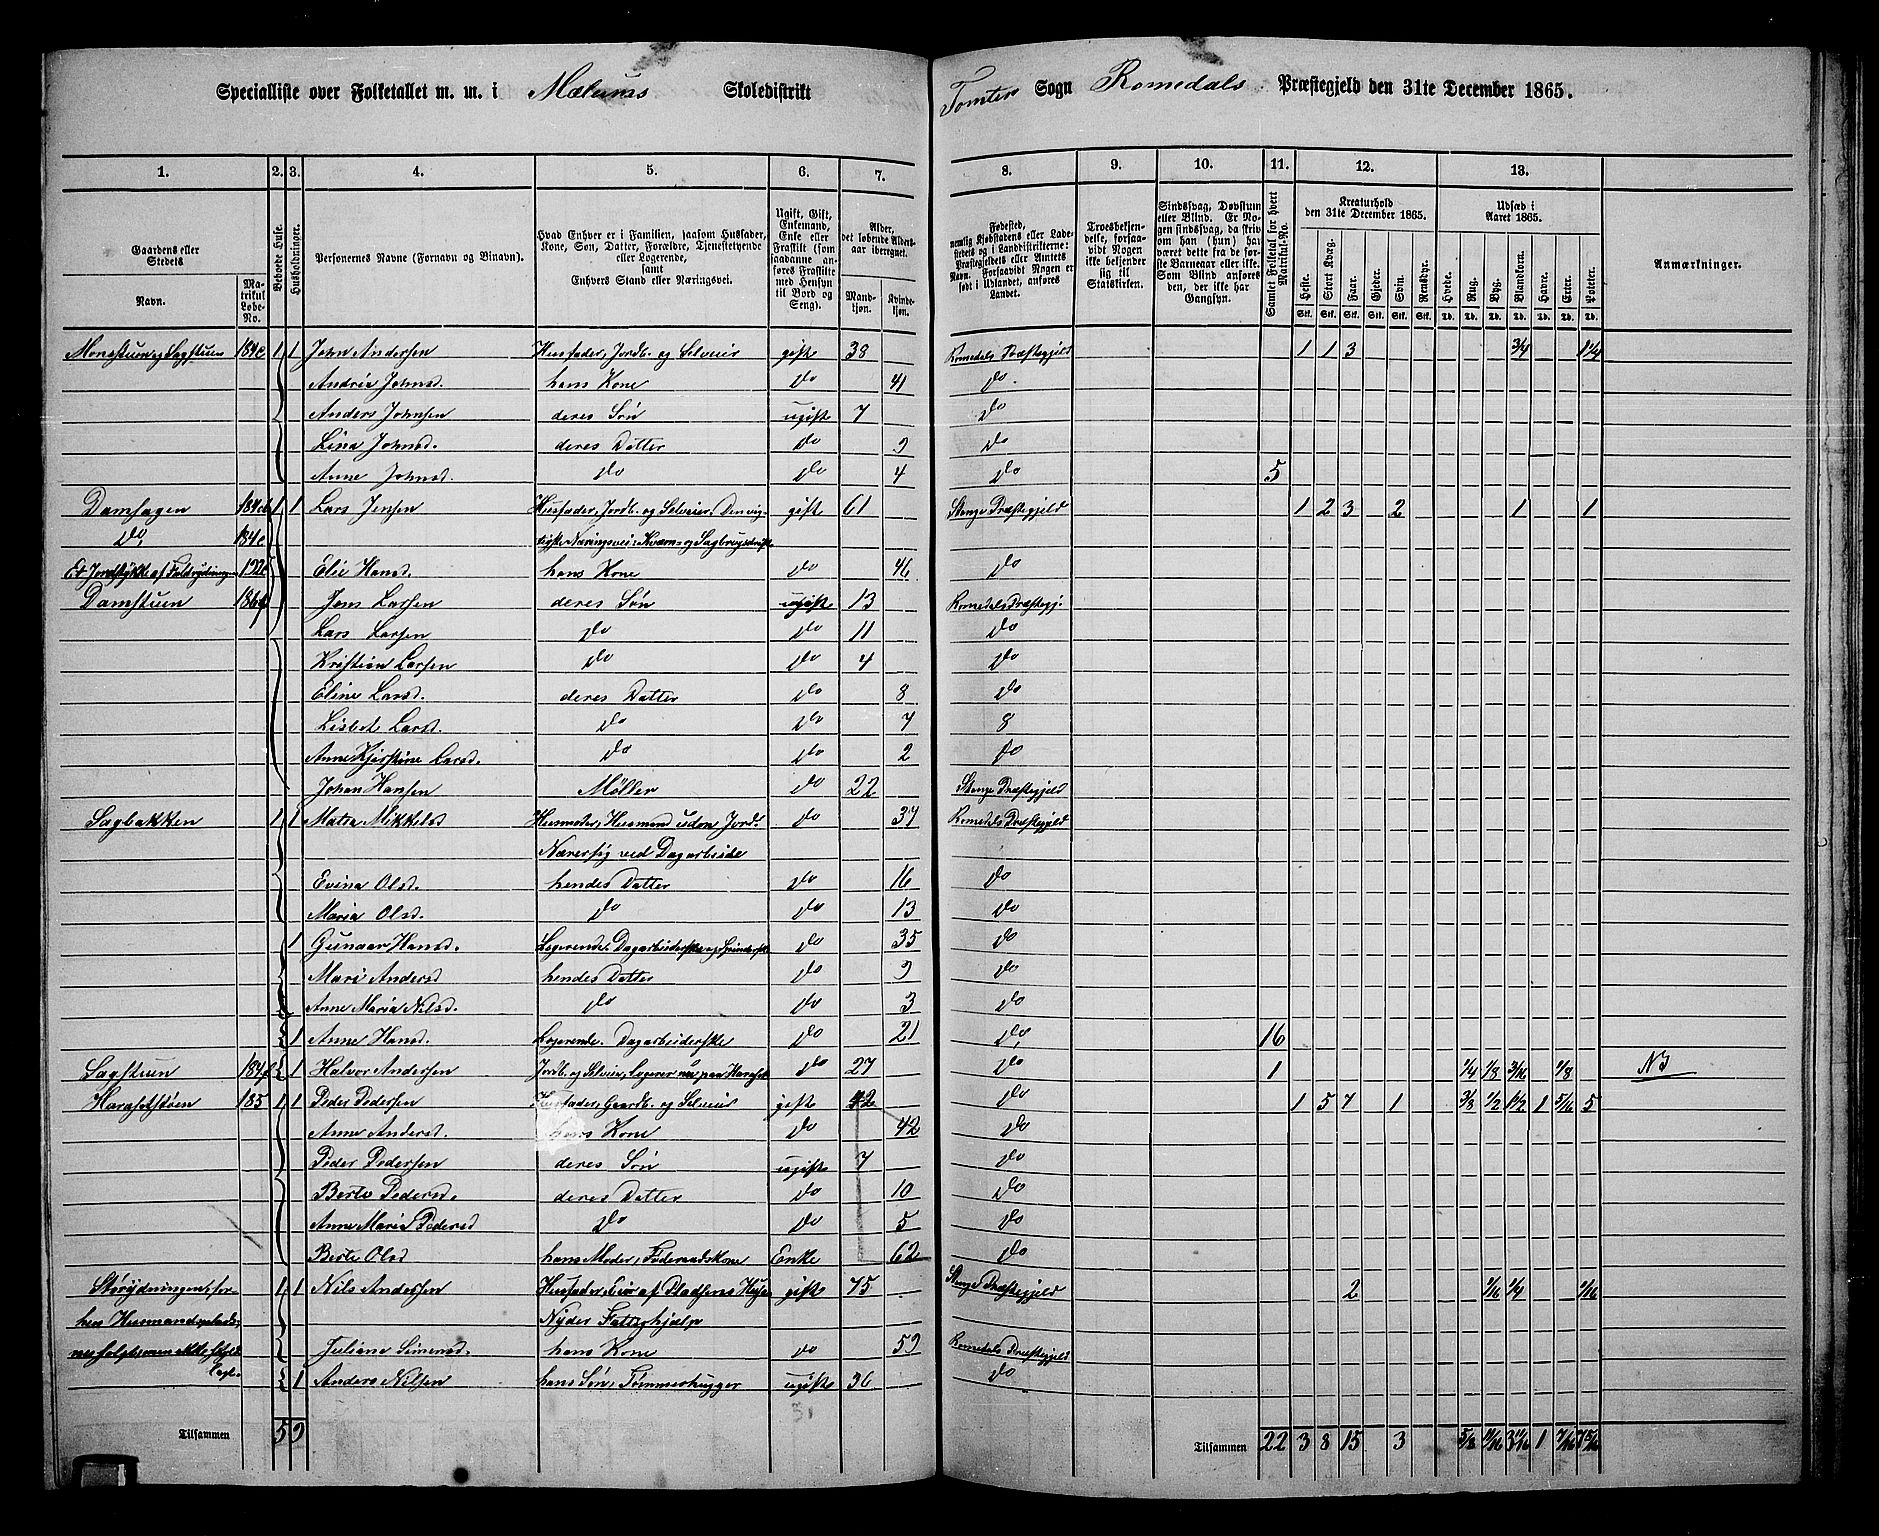 Specialliste over Folketallet m. m. i Mælums Skoledistrikt Tomter Sogn Romedals Præstegjeld den 31te December 1865.
1. 2. 3. 4. 5. 6. 7. 8. 9. 10. 11. 12. 13.
Gaardens eller Stedets Navn. Matrikul Løbe-No. Beboede Huse. Husholdninger. Personernes Navne (Fornavn og Binavn). Hvad Enhver er i Familien, saasom Husfader, Kone, Søn, Datter, Forældre, Tjenestetyende eller Logerende, samt Enhvers Stand eller Næringsvei. Ugift, Gift, Enkemand, Enke eller Fraskilt (som saadanne anføres Fraskilte med Hensyn til Bord og Seng). Alder, det løbende Aldersaar iberegnet. Mandkjøn. Kvindekjøn. Fødested, nemlig Kjøbstadens eller Ladestedets og i Landdistrikterne: Præstegjeldets eller Amtets Navn. Forsaavidt Nogen er født i Udlandet, anføres Landet. Troesbekjendelse, forsaavidt Nogen ikke bekjender sig til Statskirken. Sindssvag, Døvstum eller Blind. Er Nogen sindssvag, da skriv om han (hun) har været dette fra de første Barneaar eller ikke. Som Blind anføres den, der ikke har Gangsyn. Samlet Folketal for hvert Matrikul-No. Kreaturhold den 31te December 1865. Heste. Stort Kvæg. Faar. Gjeder. Svin. Rensdyr. Udsæd i Aaret 1865. Hvede. Rug. Byg. Blandkorn. Havre. Erter. Poteter. Anmærkninger.
Stk. Stk. Stk. Stk. Stk. Stk. Td. Td. Td. Td. Td. Td. Td.
Monastuen og Sagstuen 184c 1 1 John Andersen Husfader, Jordb. og Selveier gift 38 Romedals Præstegjeld 1 1 3 3/4 1 1/4
Andria Johnsd. hans Kone Do 41 Do
Anders Johnsen deres Søn ugift 7 Do
Lina Johnsd. deres Datter Do 9 Do
Anne Johnsd. Do Do 4 Do 5
Damhagen 184 1 1 Lars Jensen Husfader, Jordb. og Selveier. Den vig- gift 61 Stange Præstegjeld 1 2 3 2 1 1
Do 184e tigste Næringsvei: Kværn- og Sagbrugsdrift
Et Jordstykke af Faldrydningen 192 Elie Hansd. hans Kone Do 46 Do
Damstuen 186 Jens Larsen deres Søn ugift 13 Romedals Præstegj.
Lars Larsen Do Do 11 Do
Kristian Larsen Do Do 4 Do
Eline Larsd. deres Datter Do 8 Do
Lisbet Larsd. Do Do 7 8
Anne Kjerstine Larsd. Do Do 2 Do
Johan Hansen Møller Do 22 Stange Præstegjeld
Sagbakken 1 1 Matea Mikkelsd Husmoder, Husmand uden Jord. Do 37 Romedals Præstegjeld
Nærer sig ved Dagarbeide
Evina Olsd. hendes Datter Do 16 Do
Maria Olsd. Do Do 13 Do
1 Gunaar Hansd. Logerende. Dagarbeiderske og Spinderske Do 35 Do
Mari Andersd hendes Datter Do 9 Do
Anne Maria Nilsd. Do Do 3 Do
1 Anne Hansd. Logerende. Dagarbeiderske Do 21 Do 16
Sagstuen 184 1 Halvor Andersen Jordb. og Selveier, Logerer nu paa Haraset Do 27 Do 1 1/4 1/8 3/16 1/8 NB
Harasetstøen 185 1 1 Peder Pedersen Husfader, Gaardb. og Selveier gift 42 Do 1 5 7 1 3/8 1/2 1 1/2 1 5/16 5
Anne Andersd. hans Kone Do 42 Do
Peder Pedersen deres Søn ugift 7 Do
Berte Pedersd. deres Datter Do 10 Do
Anne Maria Pedersd Do Do 5 Do
Berte Olsd hans Moder, Føderaadskone Enke 62 Do
Størydningen, før- 1 1 Nils Andersen Husfader, Eier af Pladsens Huse gift 75 Stange Præstegjeld 2 1/16 1/4 1/16
hen Husmandsplads, Nyder Fattighjælp
Juliane Simensd. hans Kone Do 59 Romedals Præstegjeld
1 Anders Nilsen hans Søn, Tømmerhugger ugift 36 Do
Tilsammen 5 9 Tilsammen 22 3 8 15 3 5/8 11/16 3 11/16 1 7/16 7 5/16